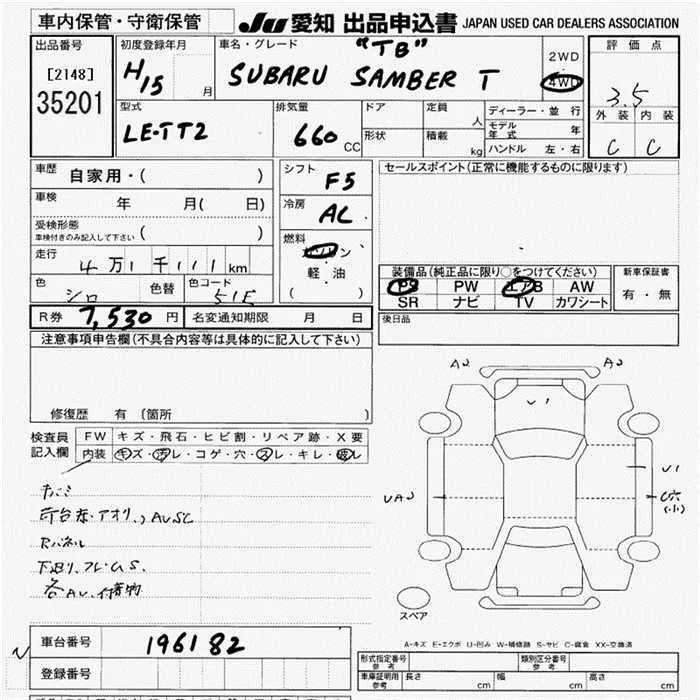 車内保管・守衛保管 JU 愛知 出品申込書 JAPAN USED CAR DEALERS ASSOCIATION
出品番号 初度登録年月 車名・グレード "TB" 2WD 評価点
[2148] H15 月 SUBARU SAMBER T 4WD 3.5
35201
型式 排気量 ドア 定員 人 ディーラー・並行 外装 内装
LE-TT2 660 CC 形状 積載 kg モデル年式 年 C C
ハンドル 左・右
車歴 自家用・( ) シフト F5 セールスポイント(正常に機能するものに限ります)
車検 年 月( 日) 冷房 AC
受検形態 ( )
車検付きのみ記入して下さい
燃料 ガソリン
走行 4万1千111km 軽・油
( )
装備品(純正品に限り○をつけてください) 新車保証書
色 シロ 色替 色コード 51E PS PW エアB AW 有・無
SR ナビ TV カワシート
R券 7,530円 名変通知期限 月 日 後日品
注意事項申告欄(不具合内容等は具体的に記入して下さい)
A2 A2
U1
修復歴 有 (箇所 )
検査員記入欄 FW キズ・飛石・ヒビ割・リペア跡・X要
内装 キズ・汚レ・コゲ・穴・スレ・キレ・破レ
U1
UA2 C穴(小)
Rパネル
下廻り、
スペア
A-キズ E-エクボ U-凹み W-補修跡 S-サビ C-腐食 XX-交換済
車台番号 196182
登録番号
形式指定番号 参考 類別区分番号 参考
車庫証明用 参考 長さ cm 幅 cm 高さ cm